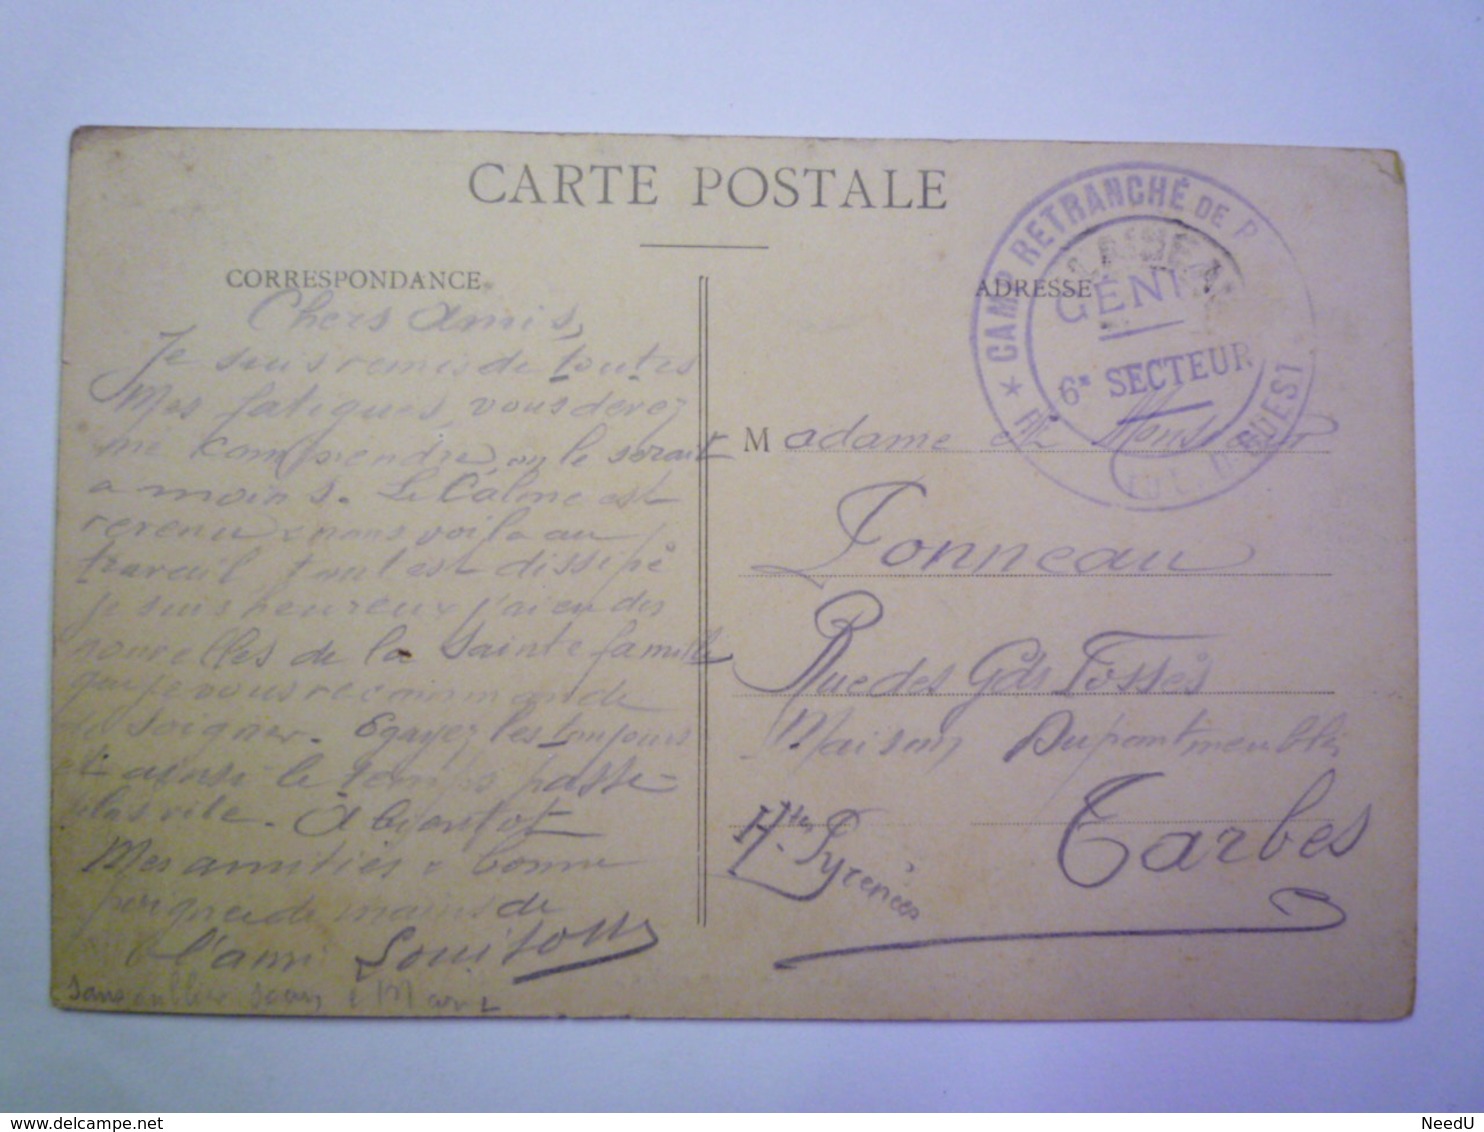 CARTE POSTALE
CORRESPONDANCE
Chers Amis,
Je suis remis de toutes
Mes fatigues, vous devez
me comprendre, on le serait
a moins. Le Calme est
revenu & nous voila au
travail tout est dissipé
je suis heureux j'ai eu des
nouvelles de la Sainte famille
que je vous recommande
de soigner. Egayez les toujours
et ainsi le temps passe
plus vite. à bientot
Mes amitiés & bonne
poignee de mains de
l'ami Louison
sans oublier
ADRESSE
CAMP RETRANCHÉ DE P
GÉNI
6e SECTEUR
OUEST
Madame et Monsieur
Tonneau
Rue des Gds Fossés
Maison Dupont meubles
Tarbes
Htes Pyrenées
NeedU